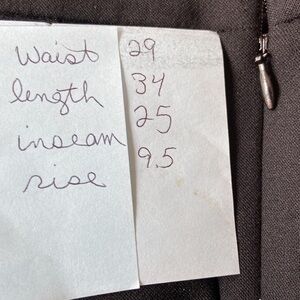 Waist 29
length 34
inseam 25
rise 9.5